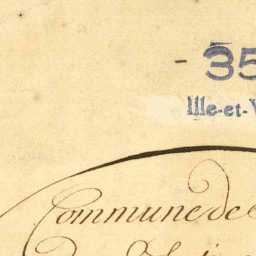 - 35
Ille-et-V
Commune de